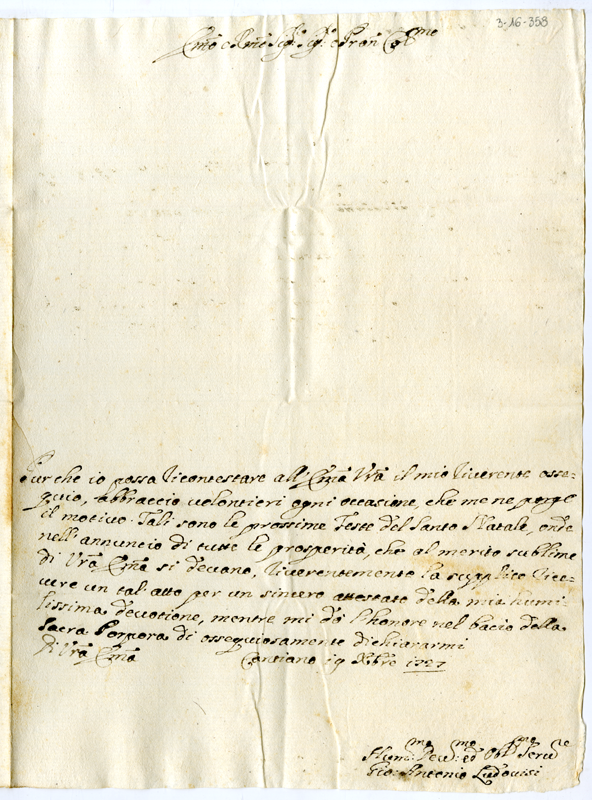 3-16-358
Emo e Rmo Sigr Sigr e Pron Colmo
Pur che io possa ricontestare all'Emza Vra il mio riverente osse=
quio, abbraccio volontieri ogni occasione, che me ne porge
il motivo. Tali sono le prossime Feste del Santo Natale, onde
nell'annuncio di tutte le prosperità, che al merito sublime
di Vra Emza si devono, riverentemente la supplico rice=
vere un tal atto per un sincero attestato della mia humi=
lissima devotione, mentre mi dò l'honore nel bacio della
Sacra Porpora di ossequiosamente dichiararmi
Di Vra Emza Cantiano 19 Xbre 1727
Hummo Devmo ed Obbmo Servre
Gio: Antonio Ludovisi